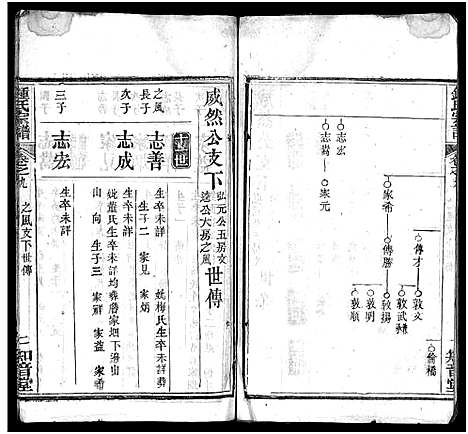 志宏
志嵩
家元
家希
傳勝
傳才
敦文
敦武
敦揚
敦明
敦順
知音堂
威然公支下
弘元公五房文
遠公大房之風
世傳
十世
之風
長子
志善
生卒未詳
姚梅氏生卒未詳葬
生子二
家見
家炳
次子
志成
生卒未詳
妣藍氏生卒未詳均葬
家垻下灣山
山向
生子三
家祥
家益
家希
三子
志宏
生卒未詳
鍾氏宗譜
卷之九
之風支下世傳
七
知音堂